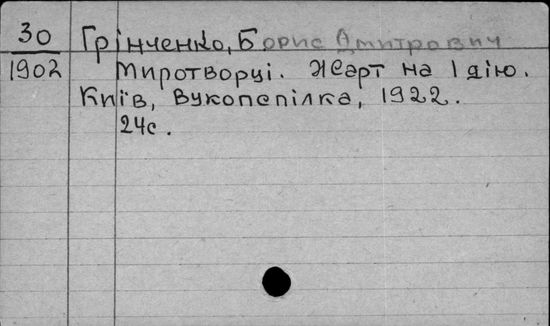 30
1902
Грінченко, Борис Дмитрович
Миротворці. Жарт на 1 дію.
Київ, Вукопспілка, 1922.
24с.